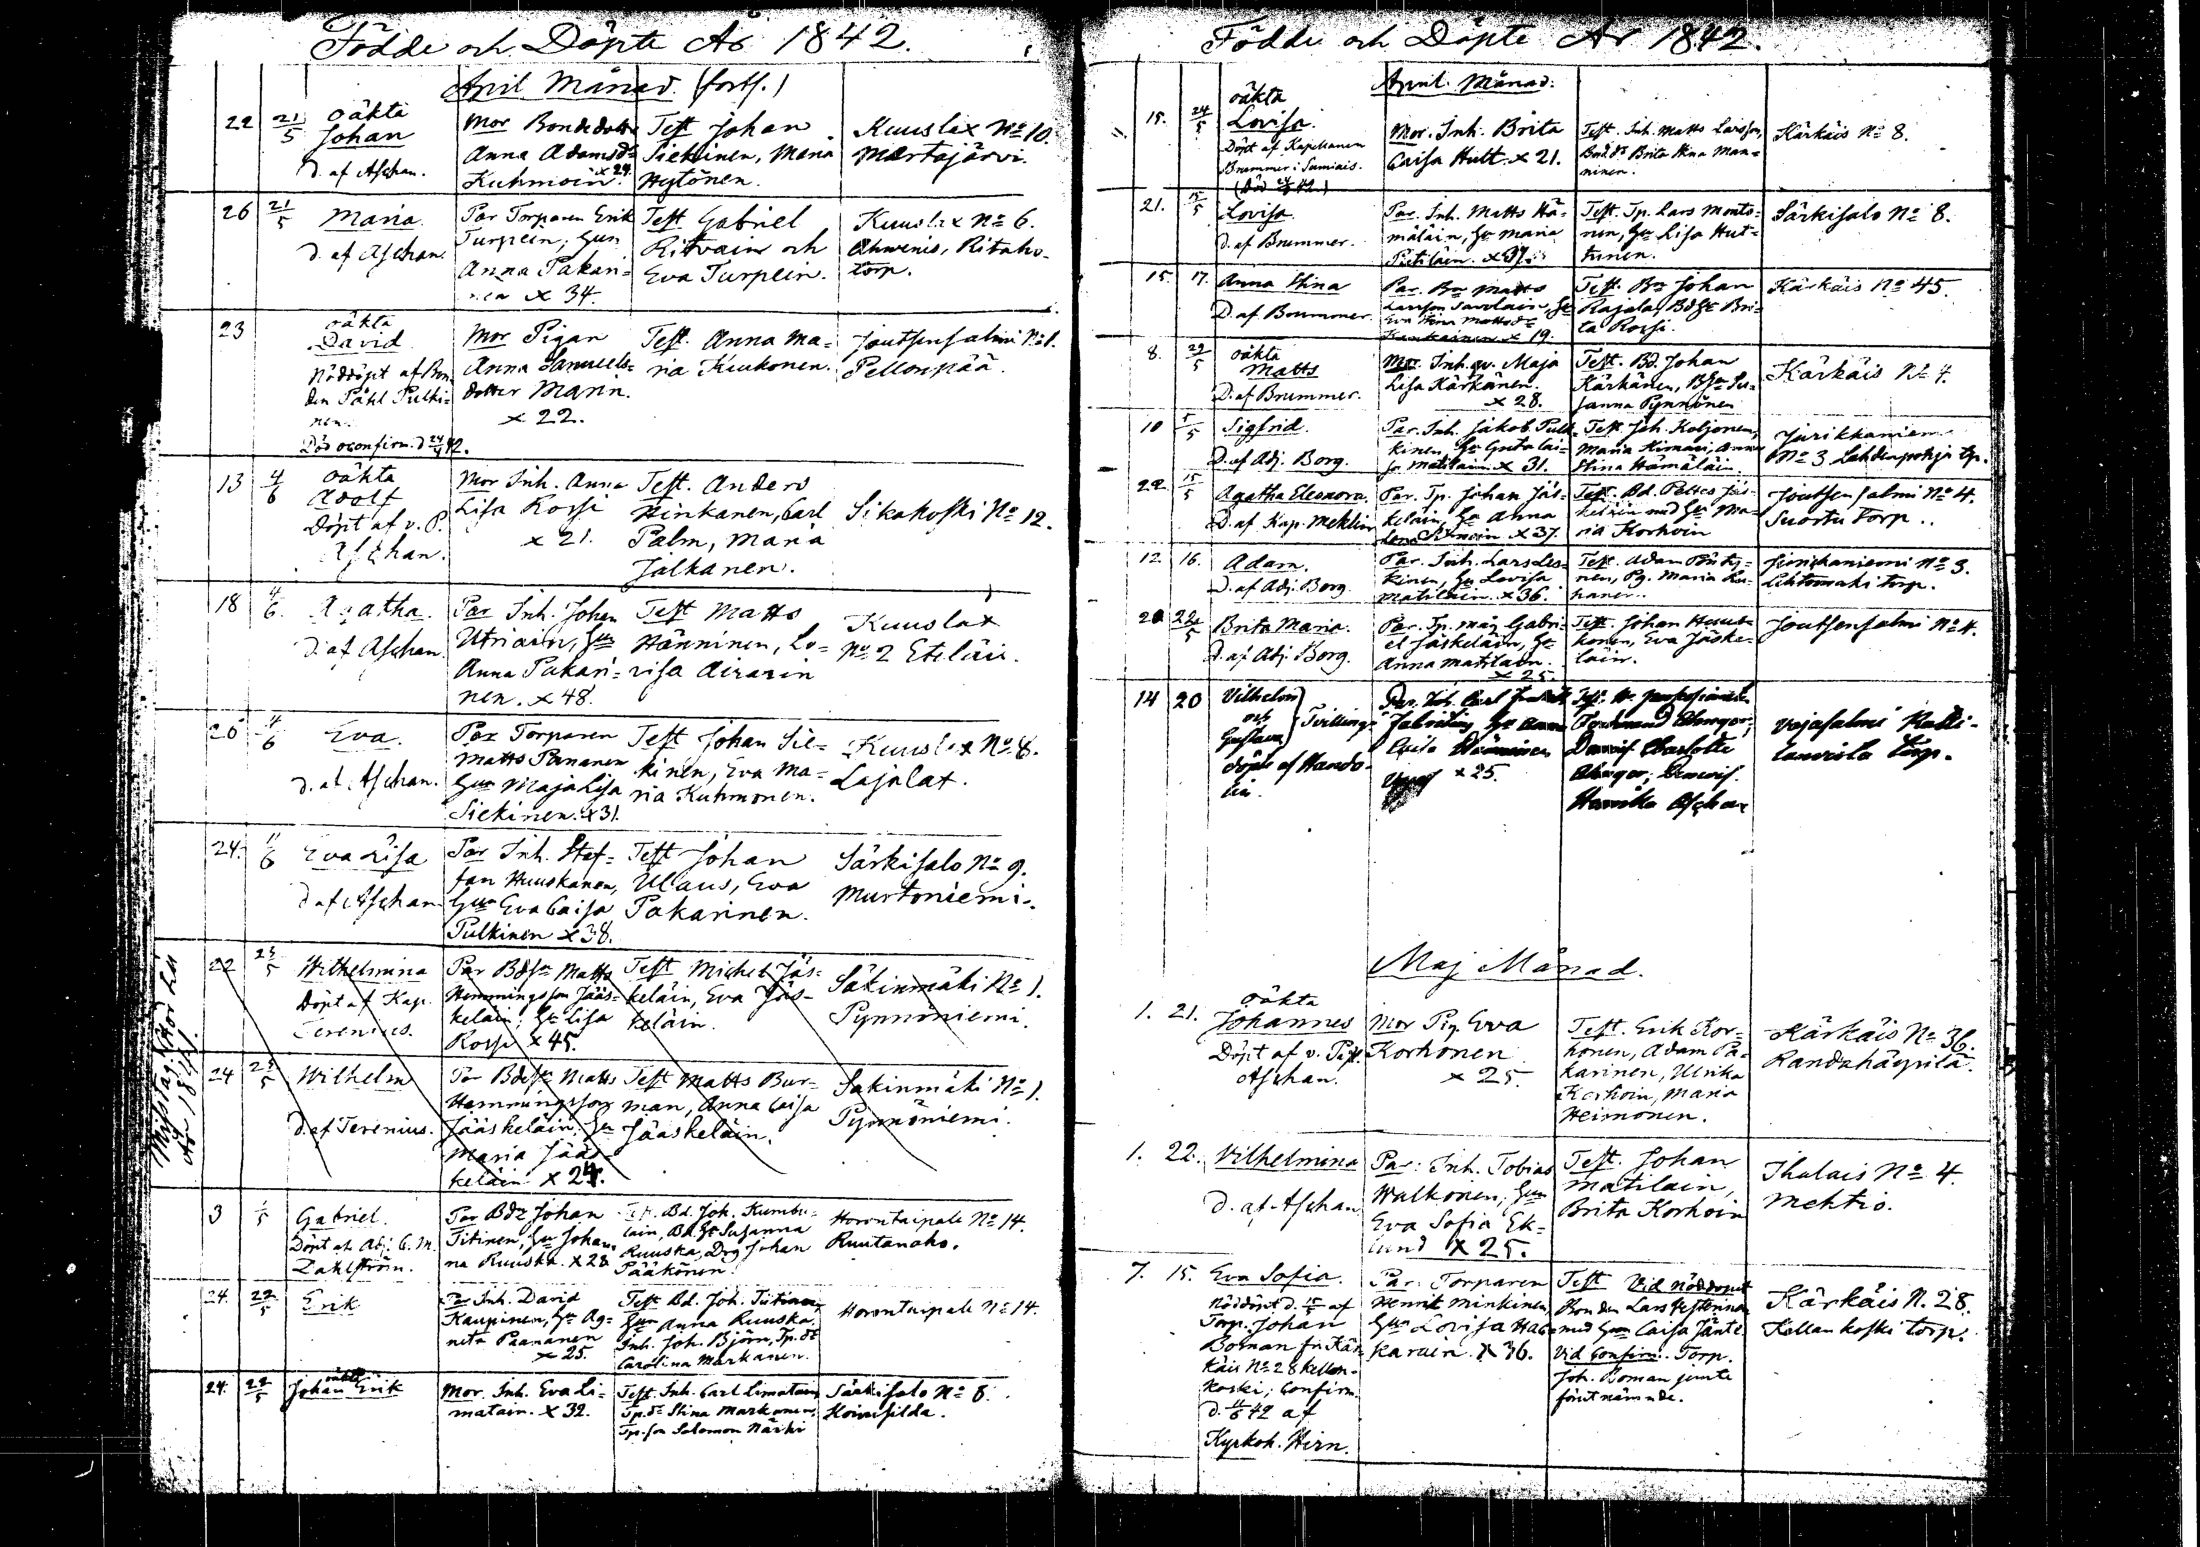 Födde och Döpte År 1842.
April Månad. (forts.)
22 21/5 oäkta
Johan
D. af Aschan.
Mor Bondedotter
Anna Adamsdr
Kuhmoin x 29.
Test Johan
Siekinen, Maria
Hytönen.
Kuuslax No 10.
Martajärvi.
26 21/5 Maria.
D. af Aschan.
Par Torparen Erik
Turpein, Hun
Anna Pakari-
nen x 34.
Test Gabriel
Ritvain och
Eva Turpein.
Kuuslax No 6.
Ahvenis, Ritaho-
torp.
23 oäkta
David
Nöddöpt af Bon-
den Påhl Pulki-
nen.
Död oconfirm. d 24/4 42.
Mor Pigan
Anna Samuels-
dotter Mann.
x 22.
Test. Anna Ma-
ria Kuukonen.
Joutsensalmi No 1.
Pellonpää.
13 4/6 oäkta
Adolf
Döpt af v. P.
Aschan.
Mor Inh. Anna
Lisa Rossi
x 21.
Test. Anders
Hinkanen, Carl
Palm, Maria
Jalkanen.
Sikakoski No 12.
18 4/6 Agatha.
D. af Aschan.
Par Inh. Johan
Utriain, Hun
Anna Pakari-
nen. x 48.
Test Matts
Hänninen, Lo-
visa Airasin
Kuuslax
No 2 Eteläis.
26 4/6 Eva.
D. af Aschan.
Par Torparen
Matts Pananen
Hun Maja Lisa
Siekinen. x 31.
Test Johan Sie-
kinen, Eva Ma-
ria Kuhmonen.
Kuuslax No 8.
Lajalax.
24. 11/6 Eva Lisa
D af Aschan
Par Inh. Stef-
fan Huuskanen,
Hun Eva Caisa
Pulkinen x 38.
Test Johan
Ulaus, Eva
Pakarinen.
Särkisalo No 9.
Murtoniemi.
22 23/5 Wilhelmina
Döpt af Kap.
Terenius.
Par Bdsn Matts
Hemmingsson Jääs-
keläin; Hr Lisa
Rossi x 45.
Test Michel Jäs-
keläin, Eva Jäs-
keläin.
Säkinmäki No 1.
Pynnöniemi.
24 23/5 Wilhelm
D. af Terenius.
Par Bdesn Matts
Hemmingsson
Jääskeläin Hu
Maria Jääs-
keläin x 24.
Test Matts Bur-
man, Anna Caisa
Jääskeläin.
Säkinmäki No 1.
Pynnöniemi.
3 1/5 Gabriel.
Döpt af Adj. C. M.
Dahlström.
Par Bdn Johan
Titinen, Hu Johan-
na Ruuska. x 28
Test. Bd. Joh. Kumbu-
lain, Bd. Hr Susanna
Ruuska, Drg Johan
Pääkönen.
Horontaipale No 14.
Ruutanaho.
24. 22/5 Erik
Par Inh. David
Kaupinen, Hr Ag-
neta Paananen
x 25.
Test Bd. Joh. Tiitinen,
Hun Anna Ruuska,
Inh. Joh. Björn, Tp. dr
Carolina Markanen.
Horontaipale No 14.
24. 22/5 oäkta
Johan Erik
Mor. Inh. Eva Li-
matain. x 32.
Test. Inh. Carl Limatain
Tp. dr Stina Markanen,
Tp. son Salomon Närhi
Särkisalo No 8.
Misstag; hör till
År 1841.
Födde och Döpte År 1842.
April Månad.
15. 24/5 oäkta
Lovisa.
Döpt af Kapellanen
Brummer i Sumiais.
Mor. Inh. Brita
Caisa Hult. x 21.
Test. Inh. Matts Larsson,
Bond. dr Brita Stina Man-
ninen.
Kärkäis No 8.
21. 15/5 Lovisa.
D. af Brummer.
Par. Inh. Matts Hä-
mäläin, Hr Maria
Putiläin. x 37.
Test. Tp. Lars Monto-
nen, Hu Lisa Hut-
tunen.
Särkisalo No 8.
15. 17. Anna Stina
D. af Brummer
Par. Bn Matts
Larsson Savolain, Hr
Eva Stina Mattsdr
Kaukainen x 19.
Test. Bn Johan
Rajala, Bd Hr Bri-
ta Rossi.
Kärkäis No 45.
8. 29/5 oäkta
Matts
D. af Brummer.
Mor. Inh. qv. Maja
Lisa Kärkänen.
x 28.
Test. Bd. Johan
Kärkänen, Bsn Su-
sanna Pynnönen
Kärkäis No 4.
10 5/5 Sigfrid.
D. af Adj. Borg.
Par. Inh. Jakob Pulk-
kinen Hr Greta Cai-
sa Matilain x 31.
Test. Joh. Koljonen,
Maria Kirmari, Anna
Stina Hämäläin.
No 3 Lahdenpohja tp.
22 15/5 Agatha Eleonora.
D. af Kap. Mehlin
Par. Tp. Johan Jäs-
keläin, Hr Anna
x 37.
Test. Bd. Petter Jäs-
keläin med Hr Ma-
ria Korhoin
Joutsensalmi No 4.
Suortu Torp.
12. 16. Adam.
D. af Adj. Borg.
Par. Inh. Lars Les-
kinen, Hr Lovisa
Matilain. x 36.
Test. Adam Pönky-
nen, Pg. Maria Lu-
kanen.
No 3.
Lehtomäki torp.
20 22/5 Brita Maria.
D. af Adj. Borg.
Par. Tp. måg Gabri-
el Jäskeläin, Hr
Anna Matilain.
x 25.
Test. Johan Huus-
konen, Eva Jäske-
läin.
Joutsensalmi No 4.
14 20 Vilhelm
och
Gustava
Tvillingar
döpte af Hando-
lin.
Par. Inh. Carl
x 25.
Test.
Ferdinand
Charlotte
Henrika Aschan
Maj Månad.
1. 21. oäkta
Johannes
Döpt af v. Past.
Aschan.
Mor Pig. Eva
Korhonen
x 25.
Test. Erik Kor-
honen, Adam Pa-
karinen, Ulrika
Korhoin, Maria
Heimonen.
Kärkäis No 36.
Randahäypilä.
1. 22. Vilhelmina
D. af Aschan
Par. Inh. Tobias
Walkonen, Hun
Eva Sofia Ek-
lund x 25.
Test. Johan
Matilain,
Brita Korhoin
Ihalais No 4.
Mehtiö.
7. 15. Eva Sofia.
Nöddöpt d. 15/5 af
Torp. Johan
Boman fr. Kär-
käis No 28 Kellan-
koski; Confirm.
d. 11/6 42 af
Kyrkoh. Hirn.
Par. Torparen
Henrik Minkinen,
Hun Lovisa Haka-
karain. x 36.
Test Vid Nöddopet
Bonden Lars Vesterinen
med Hun Caisa Jänte
Vid Confirm. Torp.
Joh. Boman jemte
förutnämnde.
Kärkäis N. 28.
Kellankoski torp.